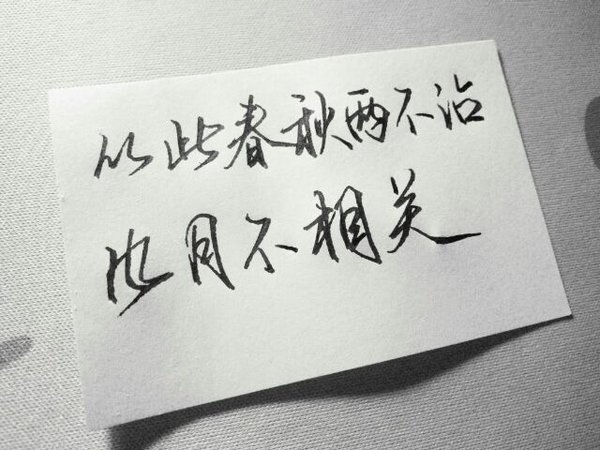 从此春秋两不沾
风月不相关